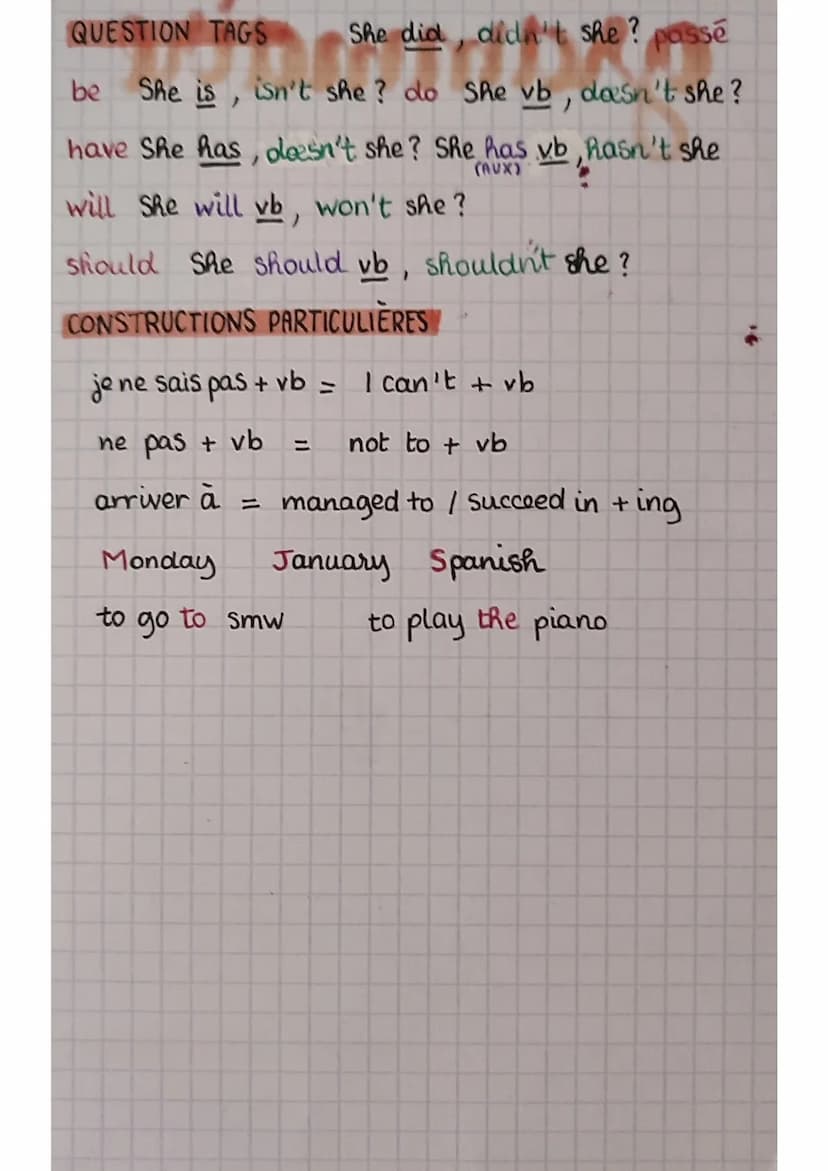 QUESTION TAGS She did, didn't she? passé
be She is, isn't she? do she vb, doesn't she?
have She has, doesn't she? She has vb, hasn't she
(AUX) ?
will She will vb, won't she?
should She should vb, shouldn't she?
CONSTRUCTIONS PARTICULIÈRES
je ne sais pas + vb = I can't + vb
ne pas + vb = not to + vb
arriver à = managed to / succeed in + ing
Monday January Spanish
to go to smw to play the piano